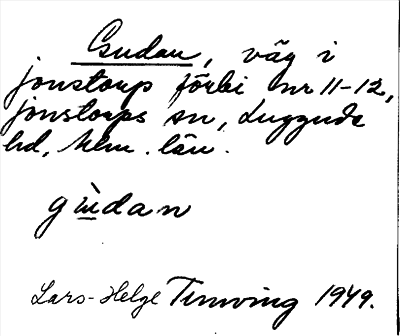 Gudan, väg i
Jonstorp förbi nr 11-12,
Jonstorps sn, Luggude
hd, Mlm. län.
gùdan
Lars-Helge Tinwing 1949.